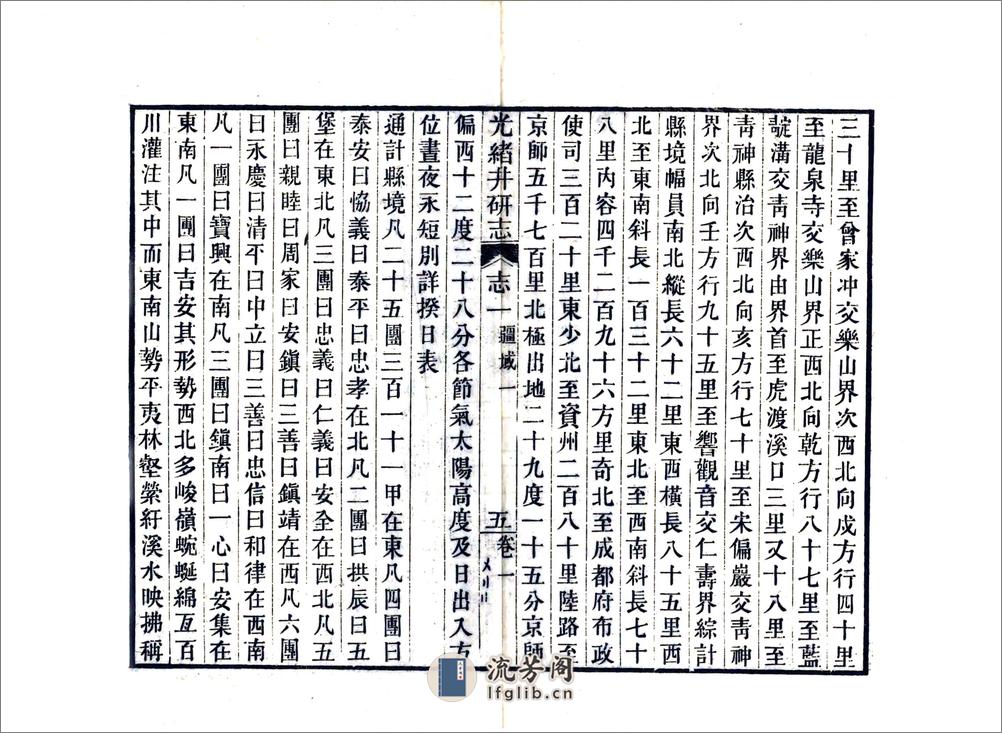 三十里至曾家冲交樂山界次西北向戌方行四十里
至龍泉寺交樂山界正西北向乾方行八十七里至藍
靛溝交靑神界由界首至虎渡溪口三里又十八里至
靑神縣治次西北向亥方行七十里至宋偏巖交靑神
界次北向壬方行九十五里至響觀音交仁壽界綜計
縣境幅員南北縱長六十二里東西橫長八十五里西
北至東南斜長一百三十二里東北至西南斜長七十
八里內容四千二百九十六方里奇北至成都府布政
使司三百二十里東少北至資州二百八十里陸路至
京師五千七百里北極出地二十九度一十五分京師
光緒井硏志
志一
疆域一
五
卷一
偏西十二度二十八分各節氣太陽高度及日出入方
位晝夜永短別詳揆日表
通計縣境凡二十五團三百一十一甲在東凡四團曰
泰安曰恊義曰泰平曰忠孝在北凡二團曰拱辰曰五
堡在東北凡三團曰忠義曰仁義曰安全在西北凡五
團曰親睦曰周家曰安鎭曰三善曰鎭靖在西凡六團
曰永慶曰清平曰中立曰三善曰忠信曰和律在西南
凡一團曰寶興在南凡三團曰鎭南曰一心曰安集在
東南凡一團曰吉安其形勢西北多峻嶺蜿蜒綿亙百
川灌注其中而東南山勢平夷林壑縈紆溪水映拂稱
流芳阁
lfglib.cn